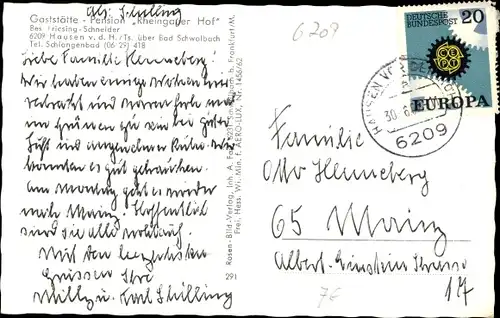 Abs. Schilling
Gaststätte - Pension "Rheingauer Hof"
Bes. Friesing-Schneider
6209 Hausen v. d. H./Ts. über Bad Schwalbach
Tel. Schlangenbad (06 29) 418
Liebe Familie Henneberg!
Wir haben einige Wochen hier
verbracht und waren
im grünen bei guter
Luft und angenehmer Ruhe. Wir
konnten es gut gebrauchen.
Am Montag geht es wieder
nach Mainz. Hoffentlich
sind Sie alle wohlauf.
Mit den herzlichsten
Grüssen Ihre
Milly u. Karl Schilling
Rosen-Bild-Verlag, Inh. A.
Frei. Hess. Wi. Min. F. AERO-LUX, Nr. 1456/62
291
6209
DEUTSCHE
BUNDESPOST
20
CEPT
EUROPA
HAUSEN VOR DER HÖHE
30.
6209
Familie
Otto Henneberg
65 Mainz
Albert-Einstein Strasse
14
7E